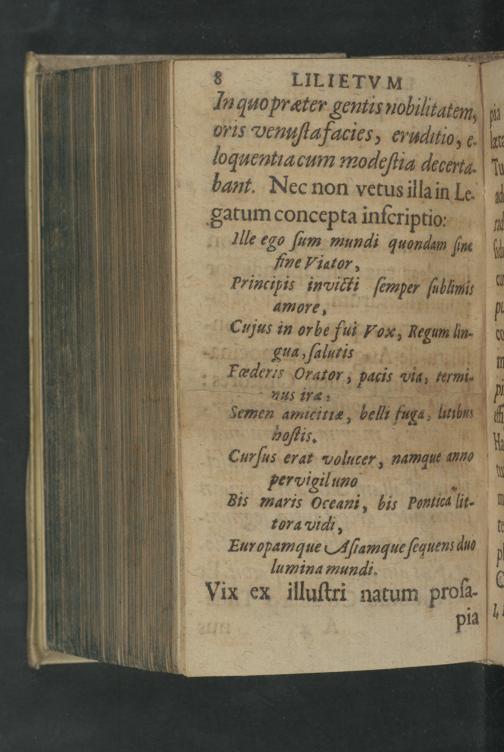 8 LILIETVM
In quo præter gentis nobilitatem,
oris venuſta facies, eruditio, e-
loquentia cum modeſtia decerta-
bant. Nec non vetus illa in Le-
gatum concepta inſcriptio:
Ille ego ſum mundi quondam ſine
fine Viator,
Principis invicti ſemper ſublimis
amore,
Cujus in orbe fui Vox, Regum lin-
gua, ſalutis
Fœderis Orator, pacis via, termi-
nus iræ,
Semen amicitiæ, belli fuga, litibus
hoſtis.
Curſus erat volucer, namque anno
pervigil uno
Bis maris Oceani, bis Pontica lit-
tora vidi,
Europamque Aſiamque ſequens duo
lumina mundi.
Vix ex illuſtri natum proſa-
pia